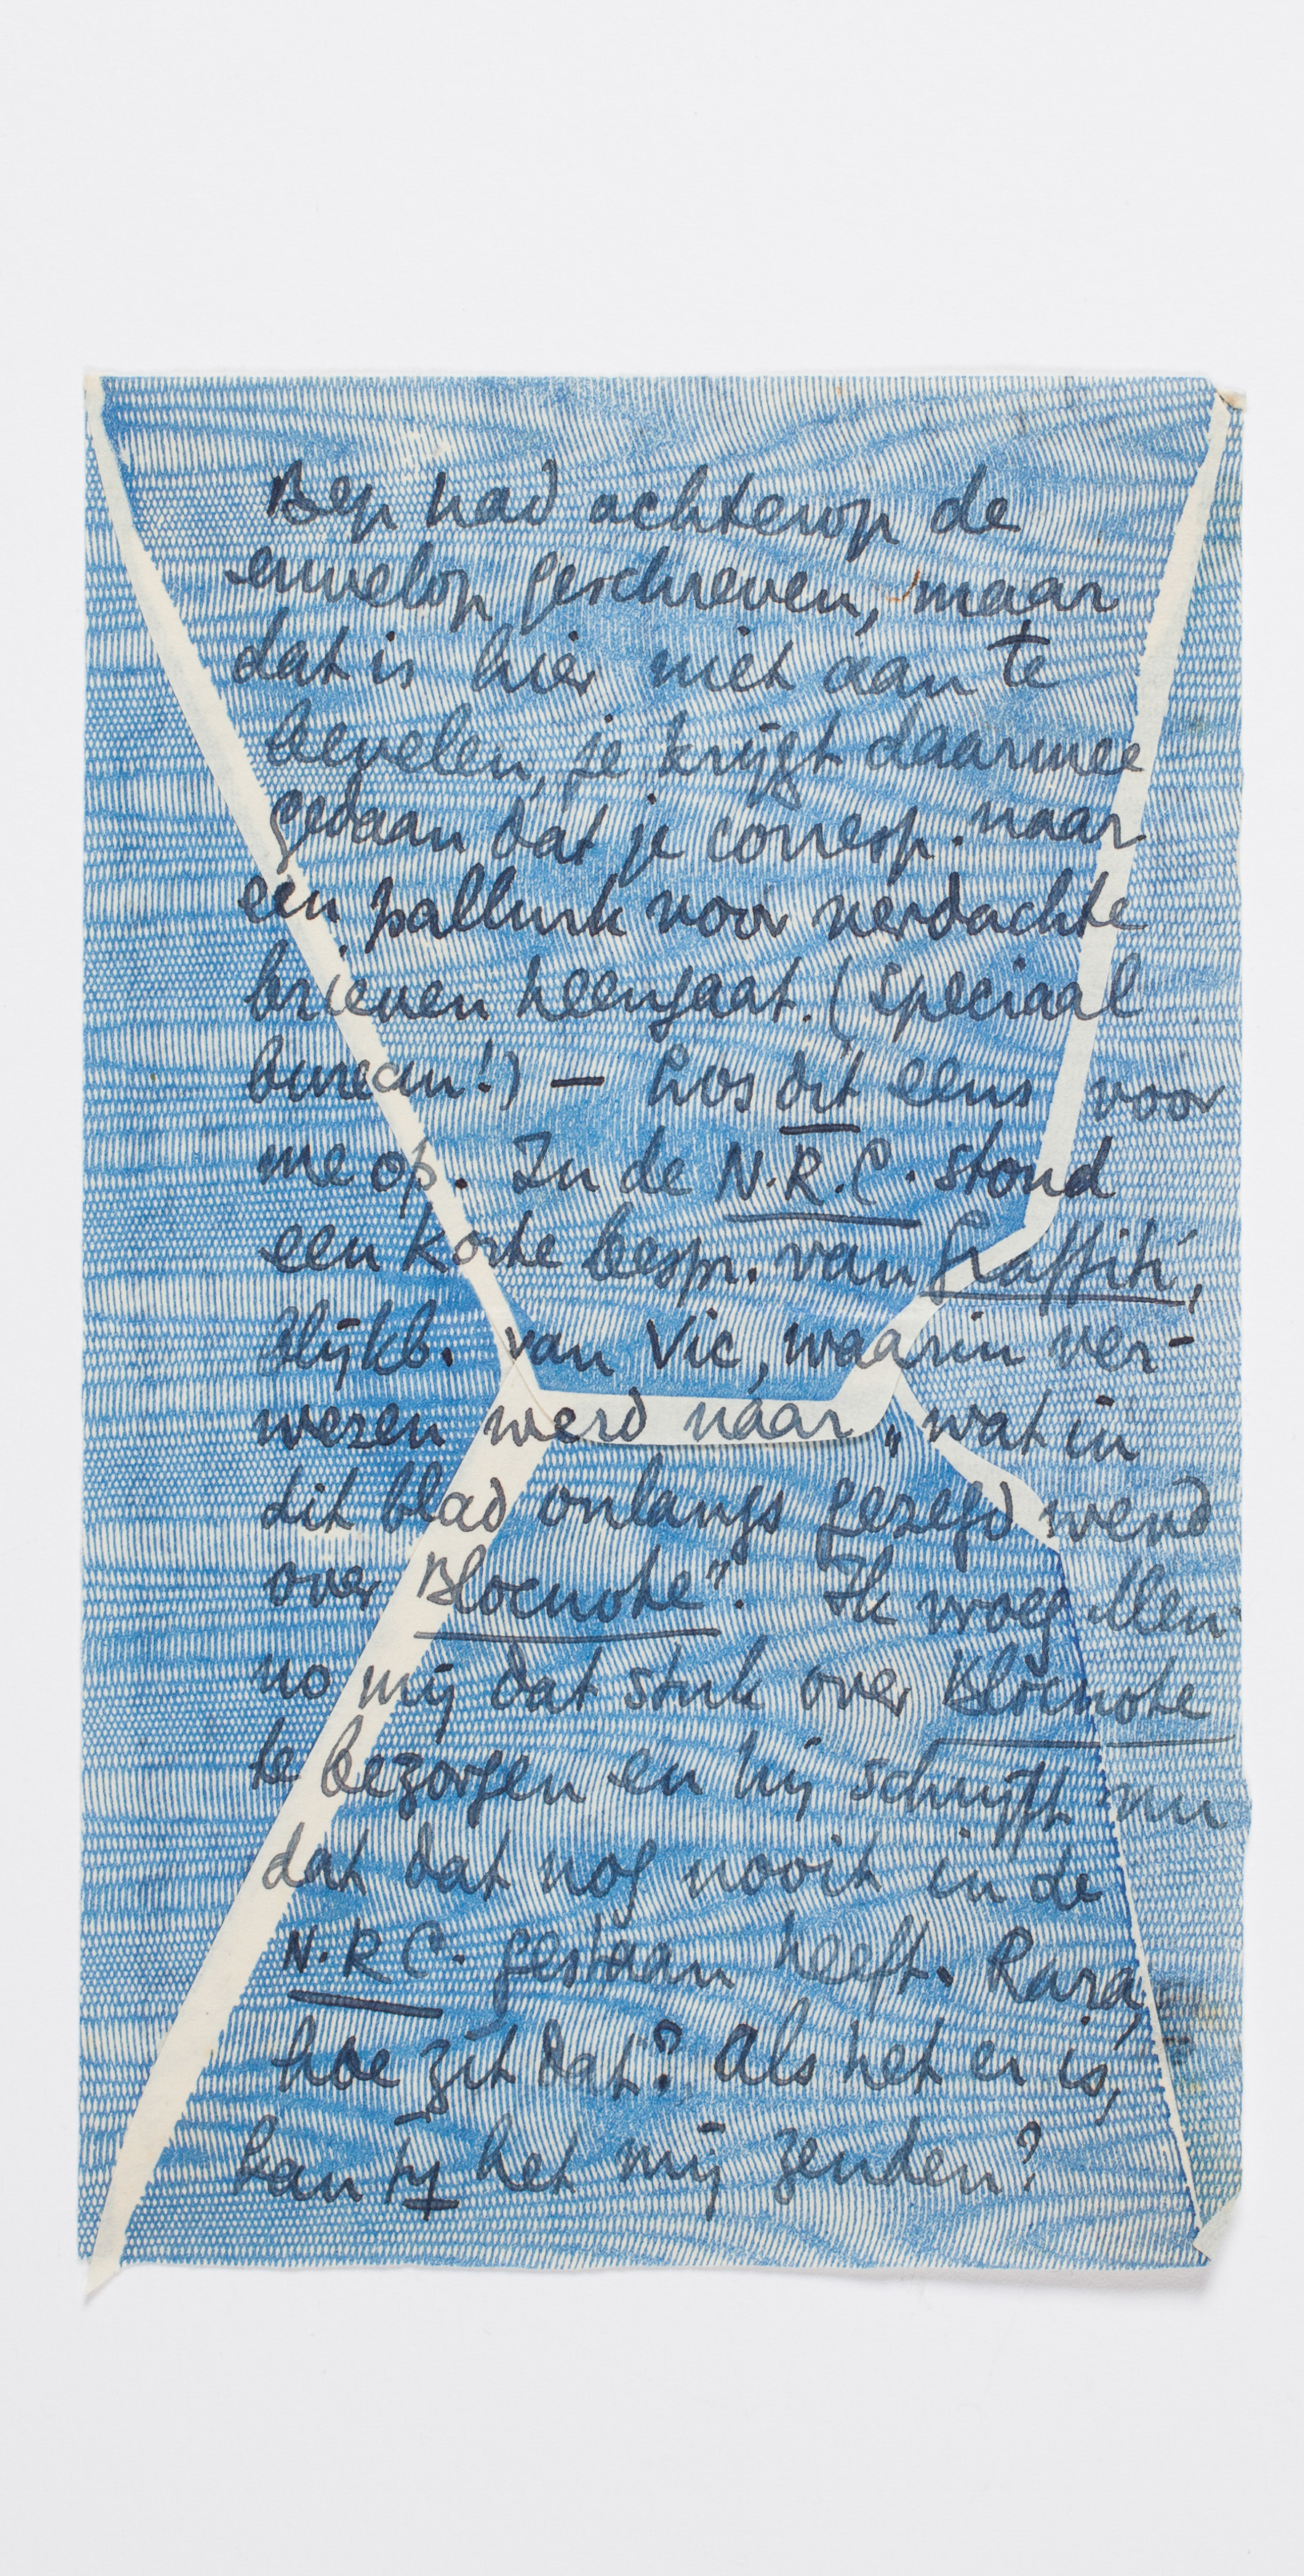 Bep had achterop de
envelop geschreven, maar
dat is hier niet aan te
bevelen, je krijgt daarmee
gedaan dat je corresp. naar
een pallurk voor verdachte
brieven heengaat. (Speciaal
bureau!) — Los dit eens voor
me op. In de N.R.C. stond
een korte besp. van Graffiti,
blijkb. van Vic, waarin ver-
wezen werd náár „wat in
dit blad onlangs gezegd werd
over Blocnote". Ik vroeg Men
no mij dat stuk over Blocnote
te bezorgen en hij schrijft nu
dat dat nog nooit in de
N.R.C. gestaan heeft. Rara,
hoe zit dat? Als het er is,
kan jij het mij zenden?